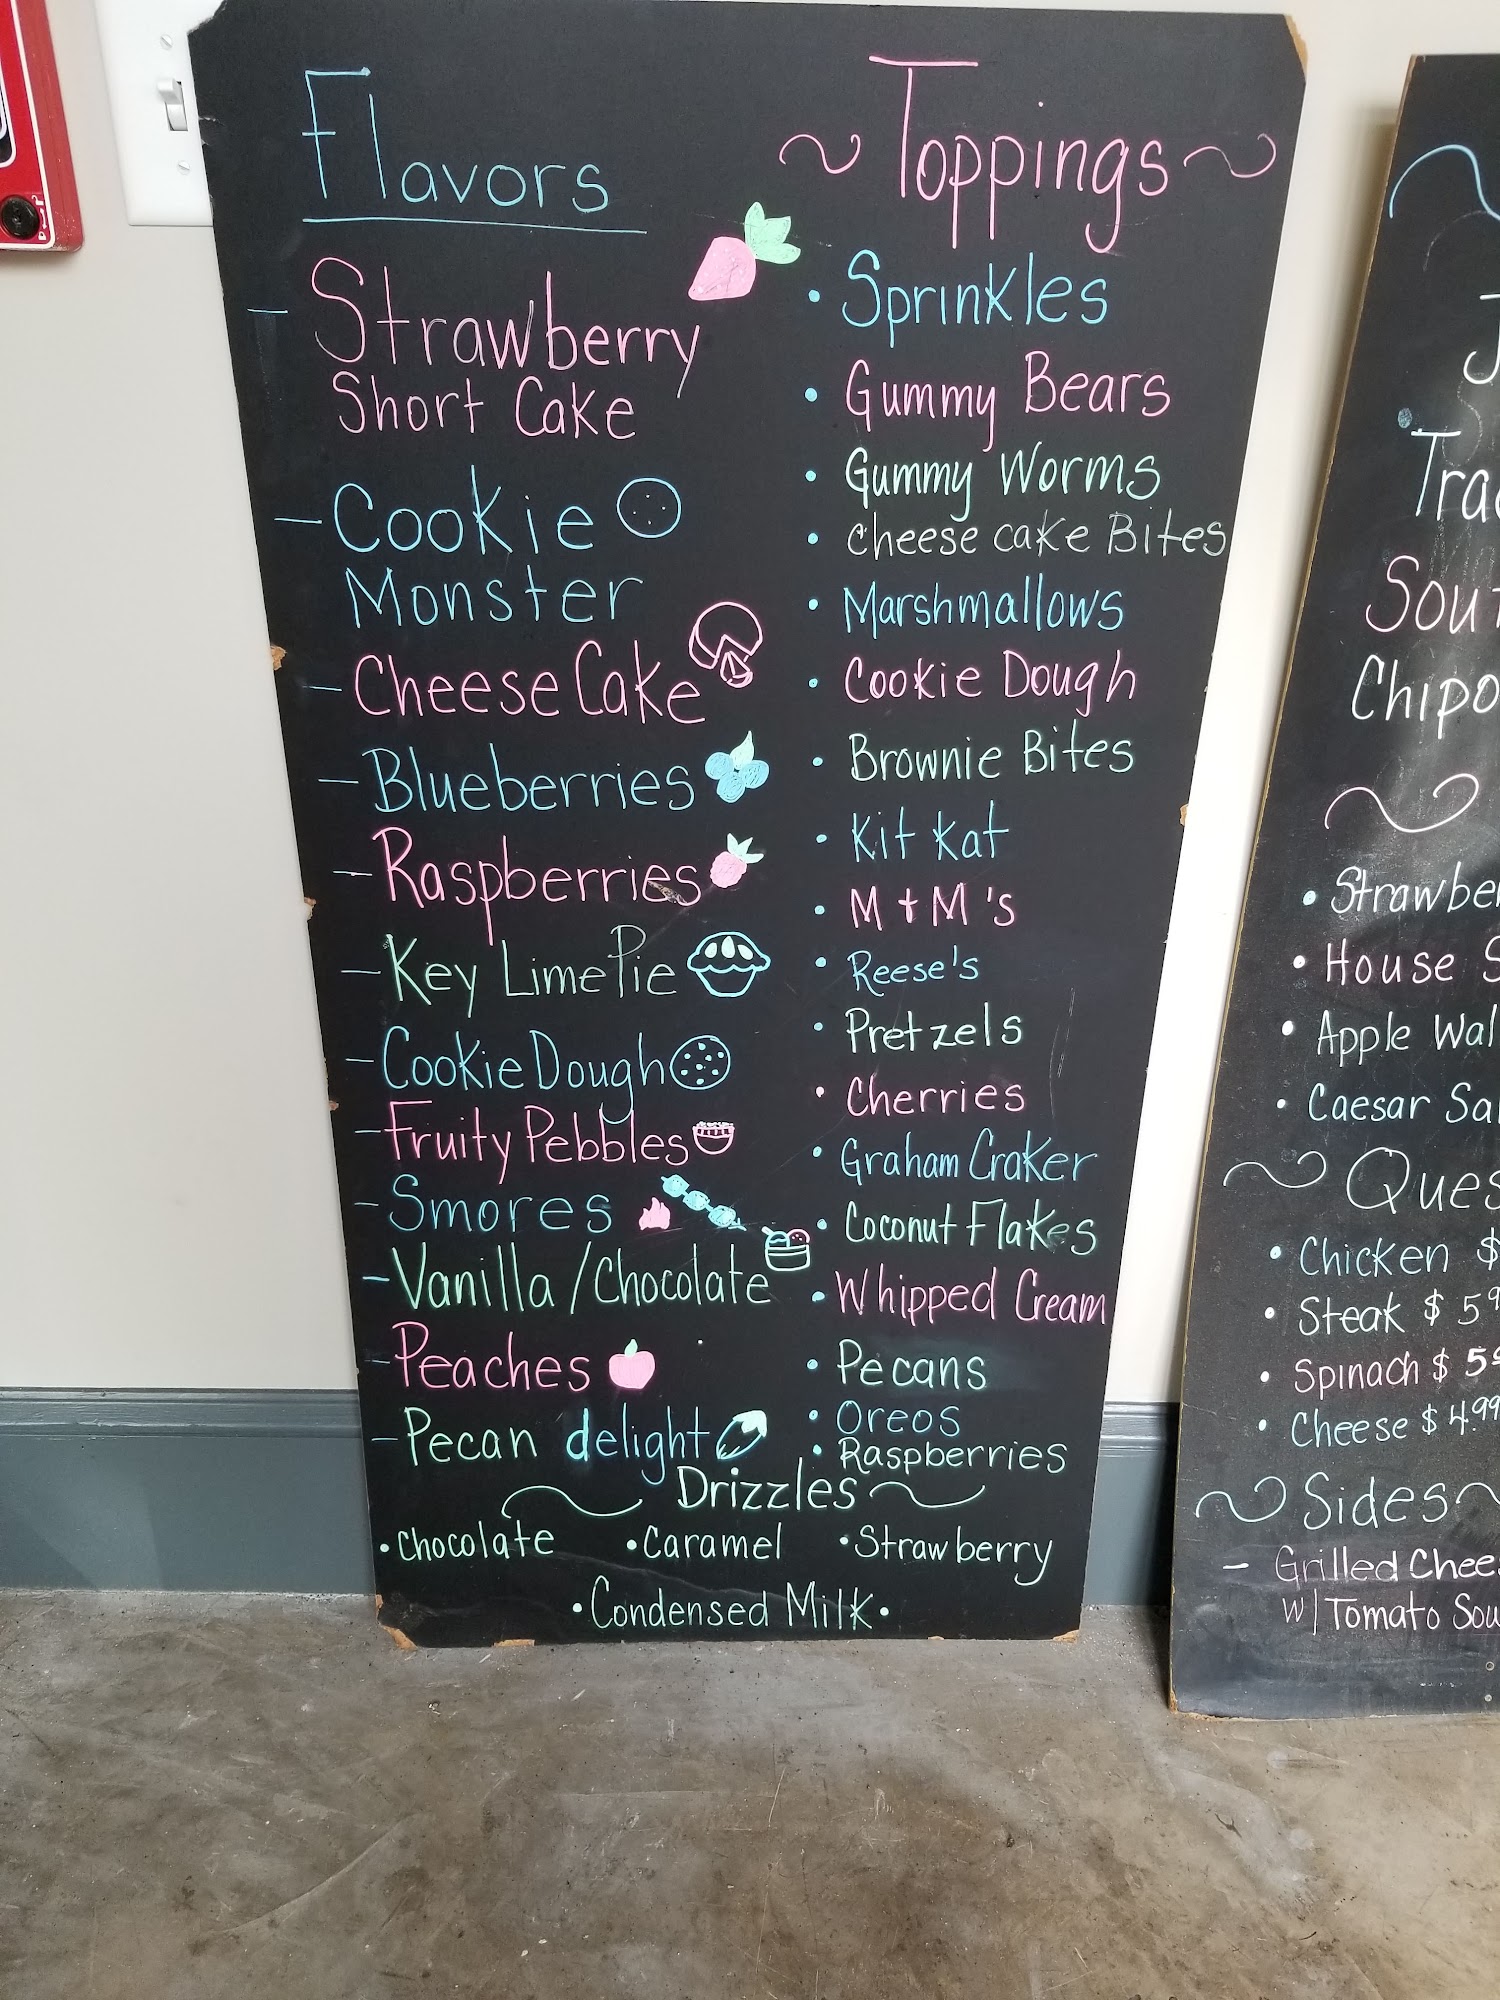 Flavors
- Strawberry
Short Cake
- Cookie
Monster
- Cheese Cake
- Blueberries
- Raspberries
- Key Lime Pie
- Cookie Dough
- Fruity Pebbles
- Smores
- Vanilla / Chocolate
- Peaches
- Pecan delight
~ Toppings ~
• Sprinkles
• Gummy Bears
• Gummy Worms
• Cheese cake Bites
• Marshmallows
• Cookie Dough
• Brownie Bites
• Kit Kat
• M + M's
• Reese's
• Pretzels
• Cherries
• Graham Craker
• Coconut Flakes
• Whipped Cream
• Pecans
• Oreos
• Raspberries
~ Drizzles ~
• Chocolate • Caramel • Strawberry
• Condensed Milk •
• Strawber
• House S
• Apple Wal
• Caesar Sal
~ Ques
• Chicken $
• Steak $ 5
• Spinach $ 5
• Cheese $ 4.99
~ Sides ~
- Grilled Chee
w/ Tomato Sou